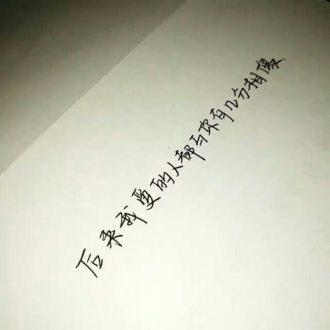 后来我爱的人都与你有几分相像